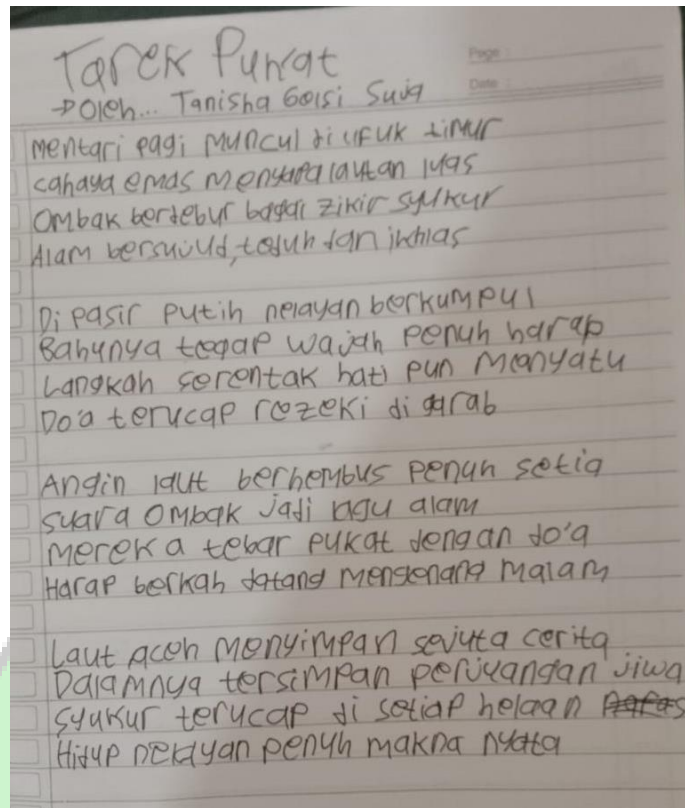 Tarek Pukat
Page :
Date :
→ Oleh... Tanisha Geisi Suja
Mentari pagi muncul di ufuk timur
cahaya emas menyapa lautan luas
Ombak berdebur bagai zikir syukur
Alam bersujud, teduh dan ikhlas
Di pasir putih nelayan berkumpul
Bahunya tegap wajah penuh harap
Langkah serentak hati pun menyatu
Do'a terucap rezeki di garab
Angin laut berhembus penuh setia
suara ombak jadi lagu alam
mereka tebar pukat dengan do'a
Harap berkah datang mengenang malam
Laut aceh menyimpan sejuta cerita
Dalamnya tersimpan perjuangan jiwa
syukur terucap di setiap helaan
Hidup nelayan penuh makna nyata